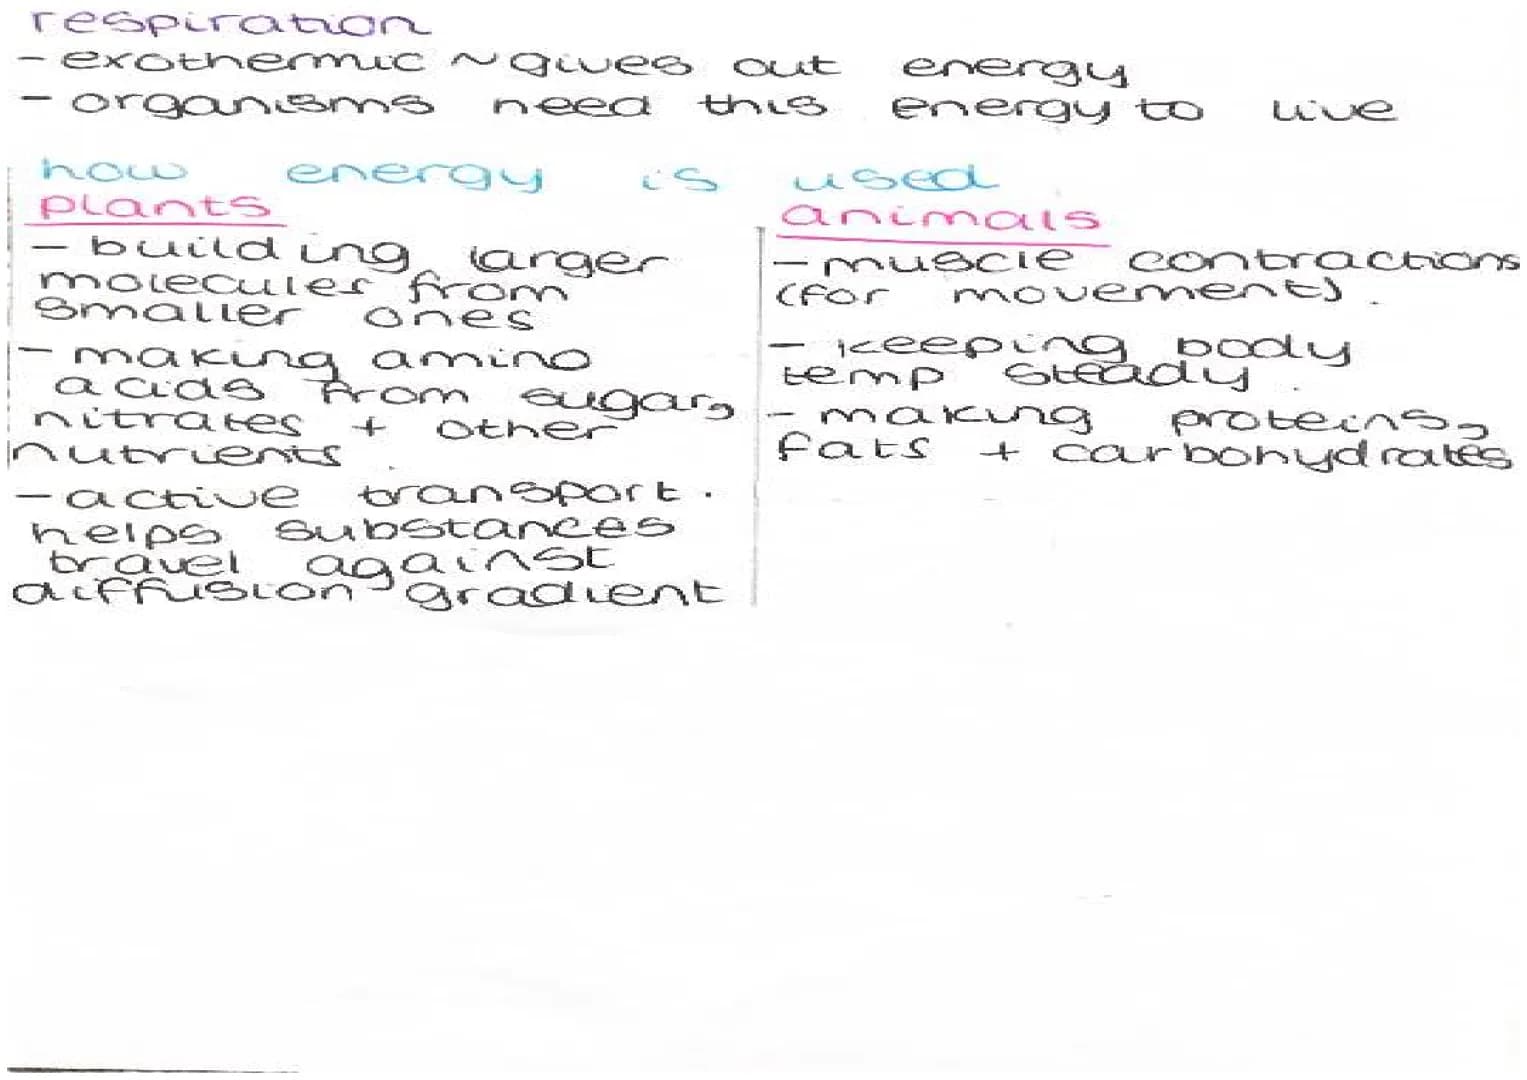 respiration
- exothermic ~ gives out energy
- organisms need this energy to live
how energy is used
plants
- building larger
molecules from
smaller ones
- making amino
acids from sugar,
nitrates + other
nutrients.
- active transport.
helps substances
travel against
diffusion gradient
animals
- muscle contractions
(for movement).
- keeping body
temp steady.
- making proteins,
fats + carbohydrates